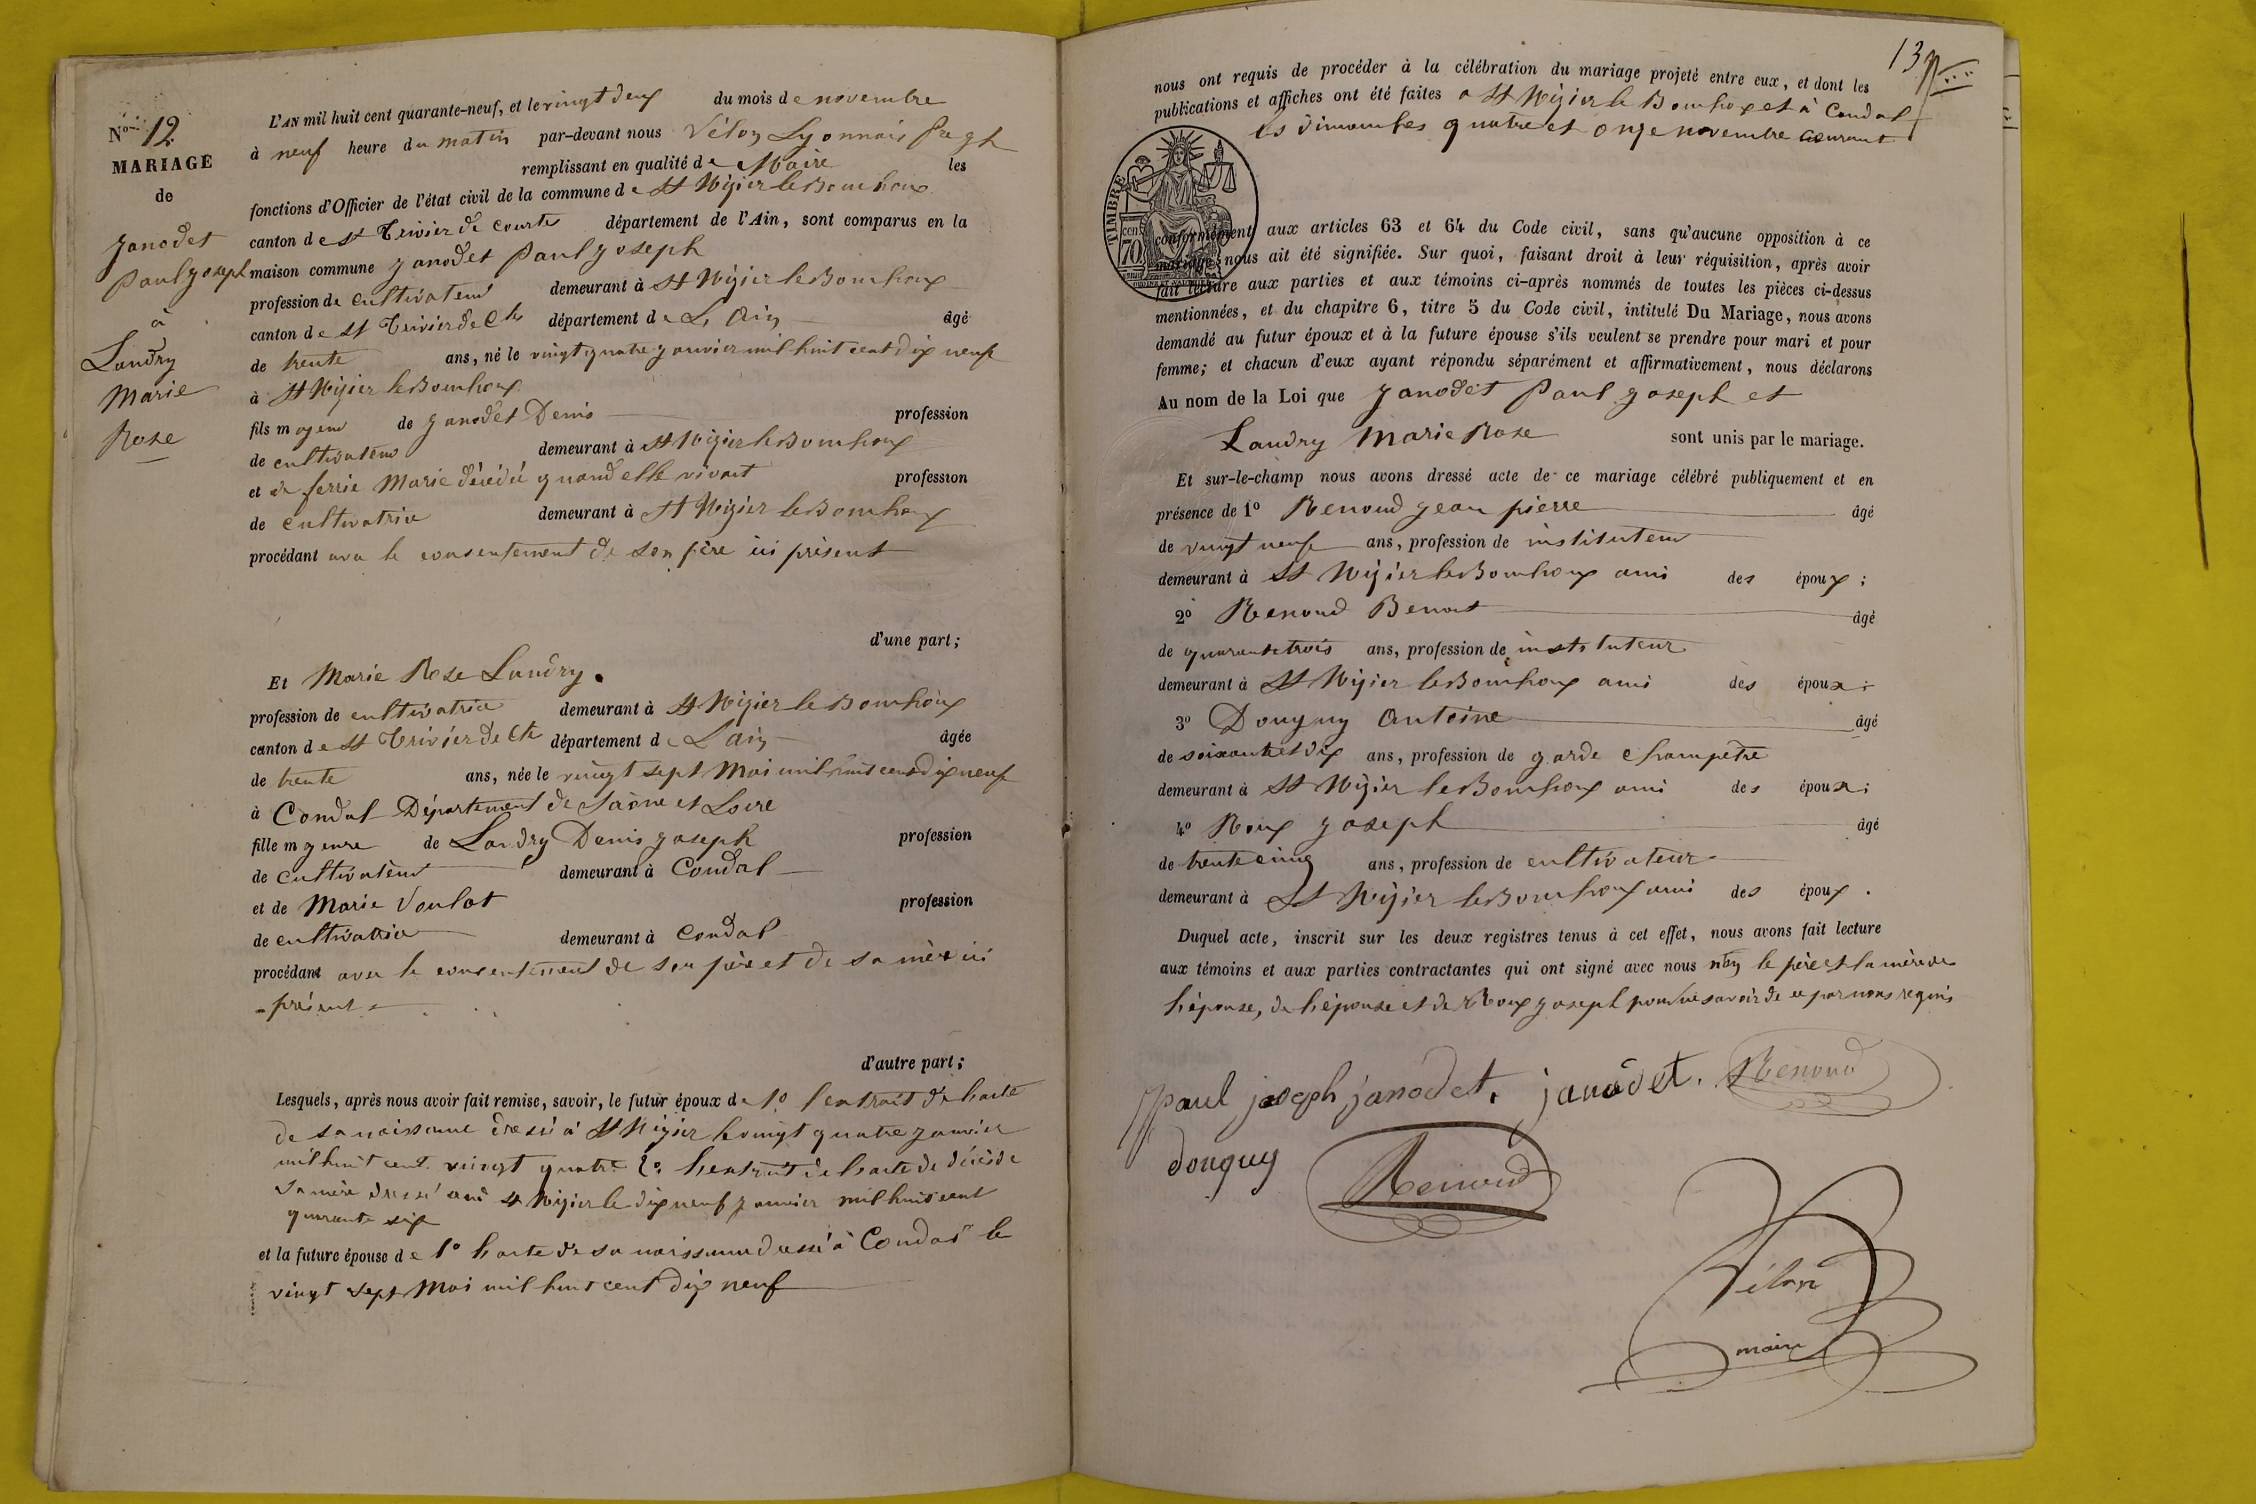 No 12
MARIAGE
de
Janodet
Paul Joseph
à
Landry
Marie
Rose
L'AN mil huit cent quarante-neuf, et le vingt deux du mois de novembre
à neuf heure du matin par-devant nous Vélon Lyonnais
remplissant en qualité de Maire les
fonctions d'Officier de l'état civil de la commune de St Nizier le Bouchoux
canton de St Trivier de Courtes département de l'Ain, sont comparus en la
maison commune Janodet Paul Joseph
profession de cultivateur demeurant à St Nizier le Bouchoux
canton de St Trivier de Ctes département de L'Ain âgé
de trente ans, né le vingt quatre janvier mil huit cent dix neuf
à St Nizier le Bouchoux
fils majeur de Janodet Denis profession
de cultivateur demeurant à St Nizier le Bouchoux
et de ferrie Marie décédée quand elle vivait profession
de cultivatrice demeurant à St Nizier le Bouchoux
procédant avec le consentement de son père ici présent
d'une part;
Et Marie Rose Landry.
profession de cultivatrice demeurant à St Nizier le Bouchoux
canton de St Trivier de Cte département de L'ain âgée
de trente ans, née le vingt sept Mai mil huit cent dix neuf
à Condal Département de Saône et Loire
fille majeure de Landry Denis Joseph profession
de cultivateur demeurant à Condal
et de Marie Voulot profession
de cultivatrice demeurant à Condal
procédant avec le consentement de son père et de sa mère ici
présents
d'autre part;
Lesquels, après nous avoir fait remise, savoir, le futur époux de 1o l'extrait de l'acte
de sa naissance dressé à St Nizier le vingt quatre janvier
mil huit cent vingt quatre 2o l'extrait de l'acte de décès de
sa mère dressé audi St Nizier le dix neuf janvier mil huit cent
quarante six
et la future épouse de 1o l'acte de sa naissance dressé à Condal le
vingt sept Mai mil huit cent dix neuf
13
nous ont requis de procéder à la célébration du mariage projeté entre eux, et dont les
publications et affiches ont été faites a St Nizier le Bouchoux et à Condal
les dimanches quatre et onze novembre courant
TIMBRE
cen
70
conformément aux articles 63 et 64 du Code civil, sans qu'aucune opposition à ce
mariage nous ait été signifiée. Sur quoi, faisant droit à leur réquisition, après avoir
fait lecture aux parties et aux témoins ci-après nommés de toutes les pièces ci-dessus
mentionnées, et du chapitre 6, titre 5 du Code civil, intitulé Du Mariage, nous avons
demandé au futur époux et à la future épouse s'ils veulent se prendre pour mari et pour
femme; et chacun d'eux ayant répondu séparément et affirmativement, nous déclarons
Au nom de la Loi que Janodet Paul Joseph et
Landry Marie Rose sont unis par le mariage.
Et sur-le-champ nous avons dressé acte de ce mariage célébré publiquement et en
présence de 1o Renoud Jean pierre âgé
de vingt neuf ans, profession de instituteur
demeurant à St Nizier le Bouchoux ami des époux;
2o Renoud Benoit âgé
de quarante trois ans, profession de instituteur
demeurant à St Nizier le Bouchoux ami des époux;
3o Douguy Antoine âgé
de soixante et dix ans, profession de garde champêtre
demeurant à St Nizier le Bouchoux ami des époux;
4o Roux Joseph âgé
de trente cinq ans, profession de cultivateur
demeurant à St Nizier le Bouchoux ami des époux.
Duquel acte, inscrit sur les deux registres tenus à cet effet, nous avons fait lecture
aux témoins et aux parties contractantes qui ont signé avec nous non le père et la mère de
l'épouse, de l'épouse et de Roux Joseph pour ne savoir de ce par nous requis
paul joseph janodet. janodet. Renoud
douguy Renoud
Vélon
maire